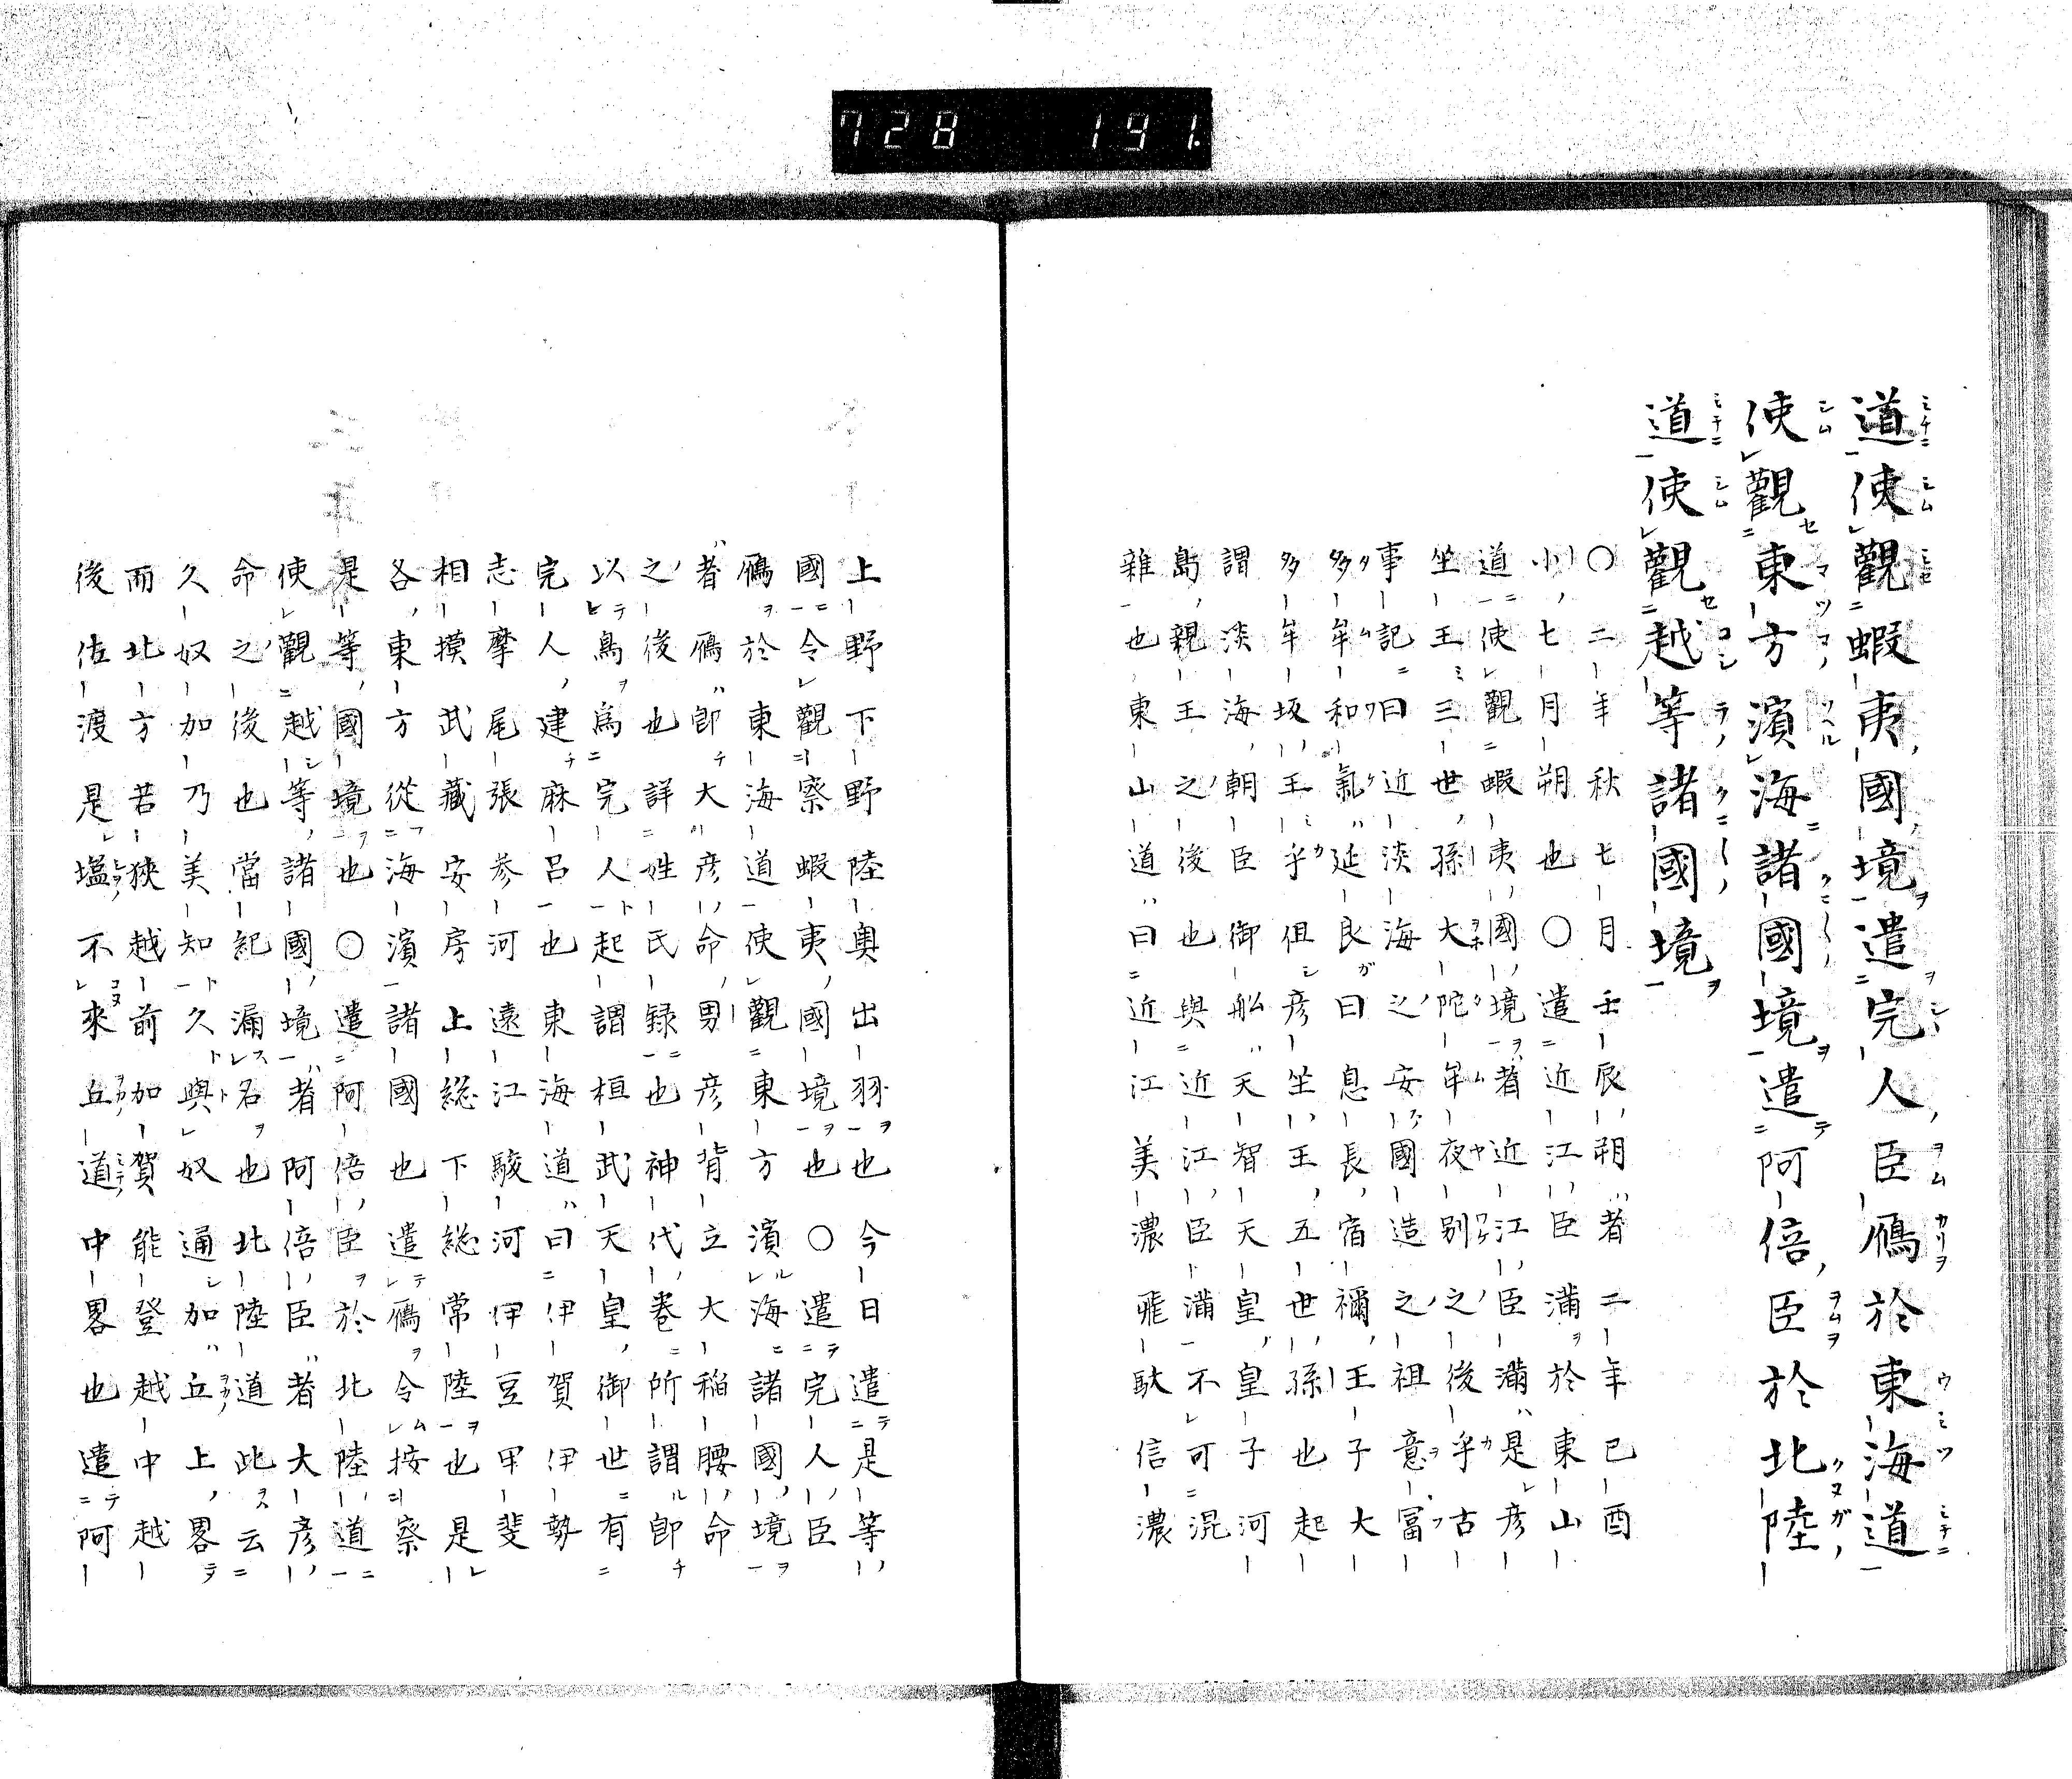 728 191.
道使觀蝦夷國境遣完人臣鴈於東海道
使觀東方濱海諸國境遣阿倍臣於北陸
道使觀越等諸國境
〇二年秋七月壬辰朔者二年己酉
小七月朔也〇遣近江臣滿於東山
道使觀蝦夷國境者近江臣滿是彦
坐王三世孫大陀牟夜別之後乎古
事記曰近淡海之安國造之祖意富
多牟和氣延良曰息長宿禰王子大
多牟坂王乎伹彦坐王五世孫也起
謂淡海朝臣御船天智天皇皇子河
島親王之後也與近江臣滿不可混
雜也東山道曰近江美濃飛駄信濃
上野下野陸奥出羽也今日遣是等
國令觀察蝦夷國境也〇遣完人臣
鴈於東海道使觀東方濱海諸國境
者鴈即大彦命男彦背立大稲腰命
之後也詳姓氏録也神代巻所謂即
以鳥爲完人起謂桓武天皇御世有
完人建麻呂也東海道曰伊賀伊勢
志摩尾張参河遠江駿河伊豆甲斐
相摸武藏安房上総下総常陸也是
各東方從海濱諸國也遣鴈令按察
是等國境也〇遣阿倍臣於北陸道
使觀越等諸國境者阿倍臣者大彦
命之後也當紀漏名也北陸道此云
久奴加乃美知久與奴通加丘上畧
而北方若狹越前加賀能登越中越
後佐渡是塩不來丘道中畧也遣阿